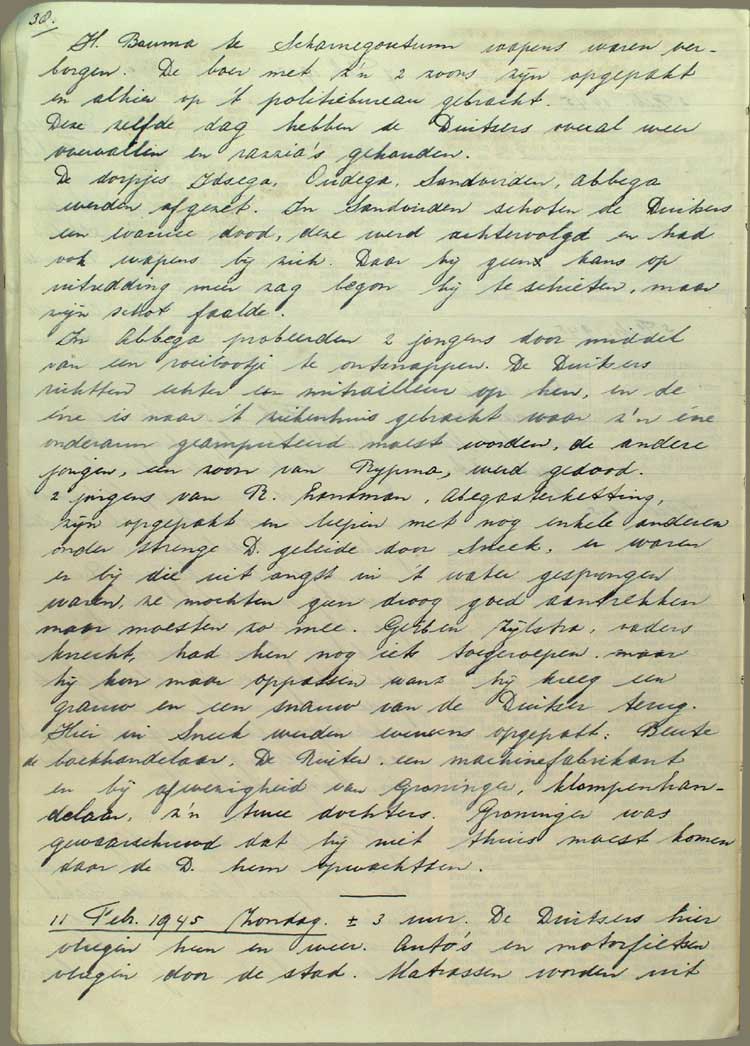 38.
H. Bouma te Scharnegoutum wapens waren ver-
borgen. De boer met z'n 2 zoons zijn opgepakt
en alhier op 't politiebureau gebracht.
Deze zelfde dag hebben de Duitsers overal weer
overvallen en razzia's gehouden.
De dorpjes Idsega, Oudega, Sandvirden, Abbega
werden afgezet. In Sandvirden schoten de Duitsers
een dood, deze werd achtervolgd en had
ook wapens bij zich. Daar hij geen kans op
uitredding meer zag begon hij te schieten, maar
zijn schot faalde.
In Abbega probeerden 2 jongens door middel
van een roeibootje te ontsnappen. De Duitsers
richtten echter een mitrailleur op hen, en de
éne is naar 't ziekenhuis gebracht waar z'n éne
onderarm geamputeerd moest worden, de andere
jongen, een zoon van Rypma, werd gedood.
2 jongens van R. Abegasterketting,
zijn opgepakt en liepen met nog enkele anderen
onder strenge D. geleide door Sneek, er waren
er bij die uit angst in 't water gesprongen
waren, ze mochten geen droog goed aantrekken
maar moesten zo mee. Gerben Zijlstra, vaders
knecht, had hen nog iets toegeroepen maar
hij kon maar oppassen want hij kreeg een
grauw en een snauw van de Duitser terug.
Hier in Sneek werden eveneens opgepakt: Beute
de boekhandelaar, De Ruiter een machinefabrikant
en bij afwezigheid van Groninger, klompenhan-
delaar, z'n twee dochters. Groninger was
gewaarschuwd dat hij niet thuis moest komen
daar de D. hem opwachtten.
11 Feb. 1945 Zondag. ± 3 uur. De Duitsers hier
vliegen heen en weer. Auto's en motorfietsen
vliegen door de stad. Matrassen worden uit